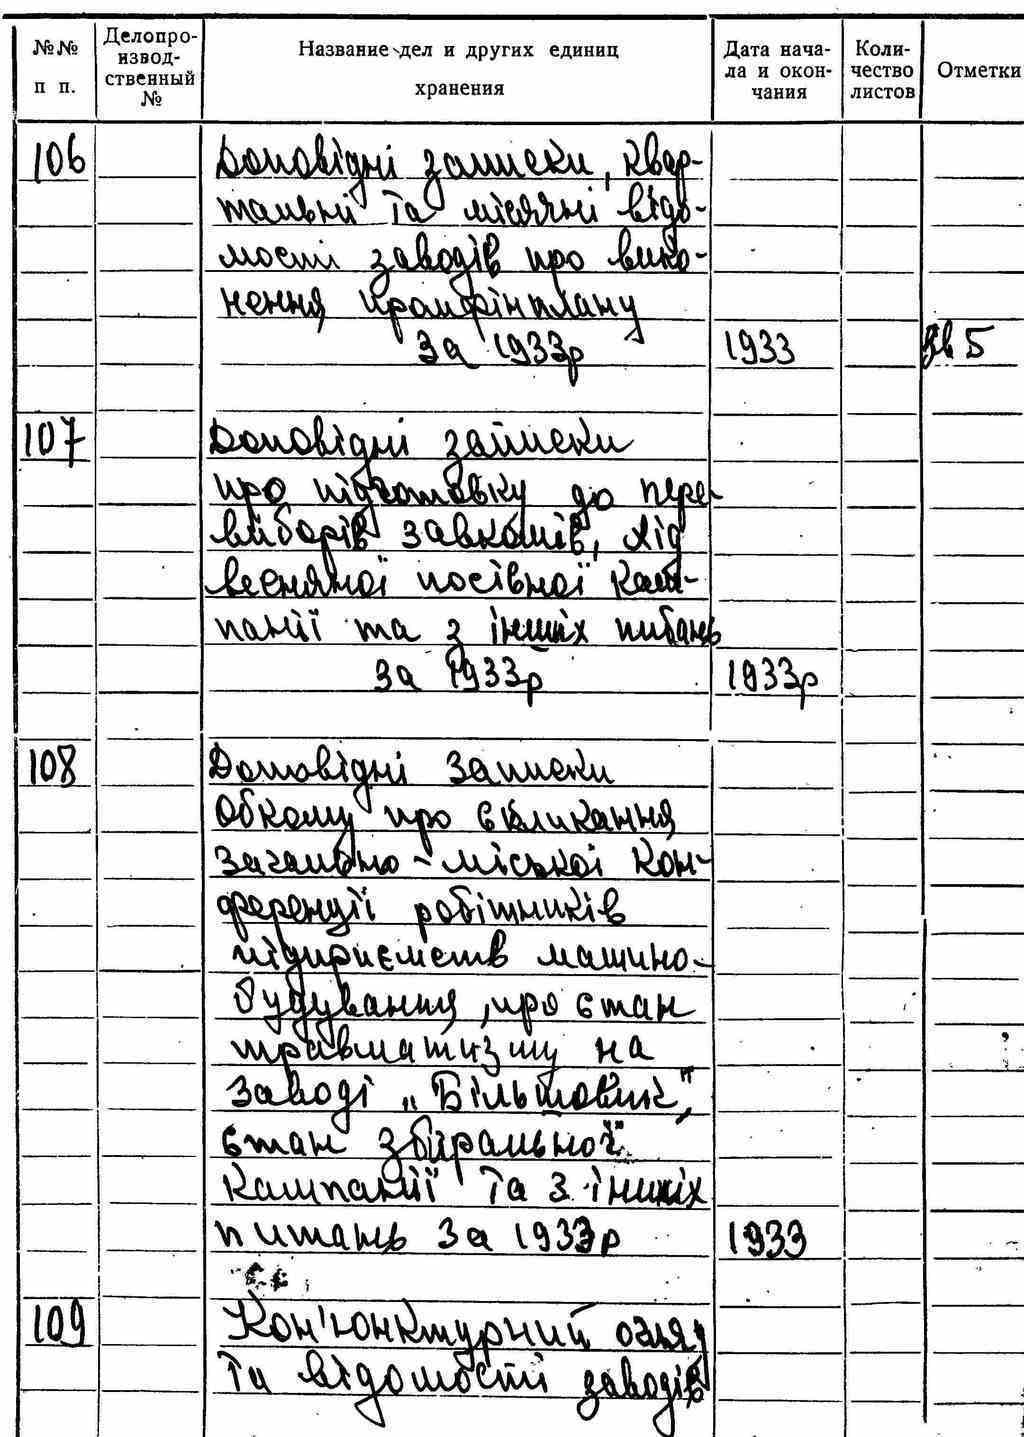 №№ п п.
Делопро-
извод-
ственный
№
Название дел и других единиц
хранения
Дата нача-
ла и окон-
чания
Коли-
чество
листов
Отметки
106 Доповідні записки, квар-
тальні та місячні відо-
мості заводів про вико-
нення промфінплану
за 1933р 1933
107 Доповідні записки
про підготовку до пере-
виборів завкомів, хід
весняної посівної кам-
панії та з інших питань
за 1933р 1933р
108 Доповідні записки
Обкому про скликання
загально-міської кон-
ференції робітників
підприємств машино-
будування, про стан
травматизму на
заводі „Більшовик",
стан збиральної
кампанії та з інших
питань за 1933р 1933
109 Кон'юнктурний огляд
та відомості заводів